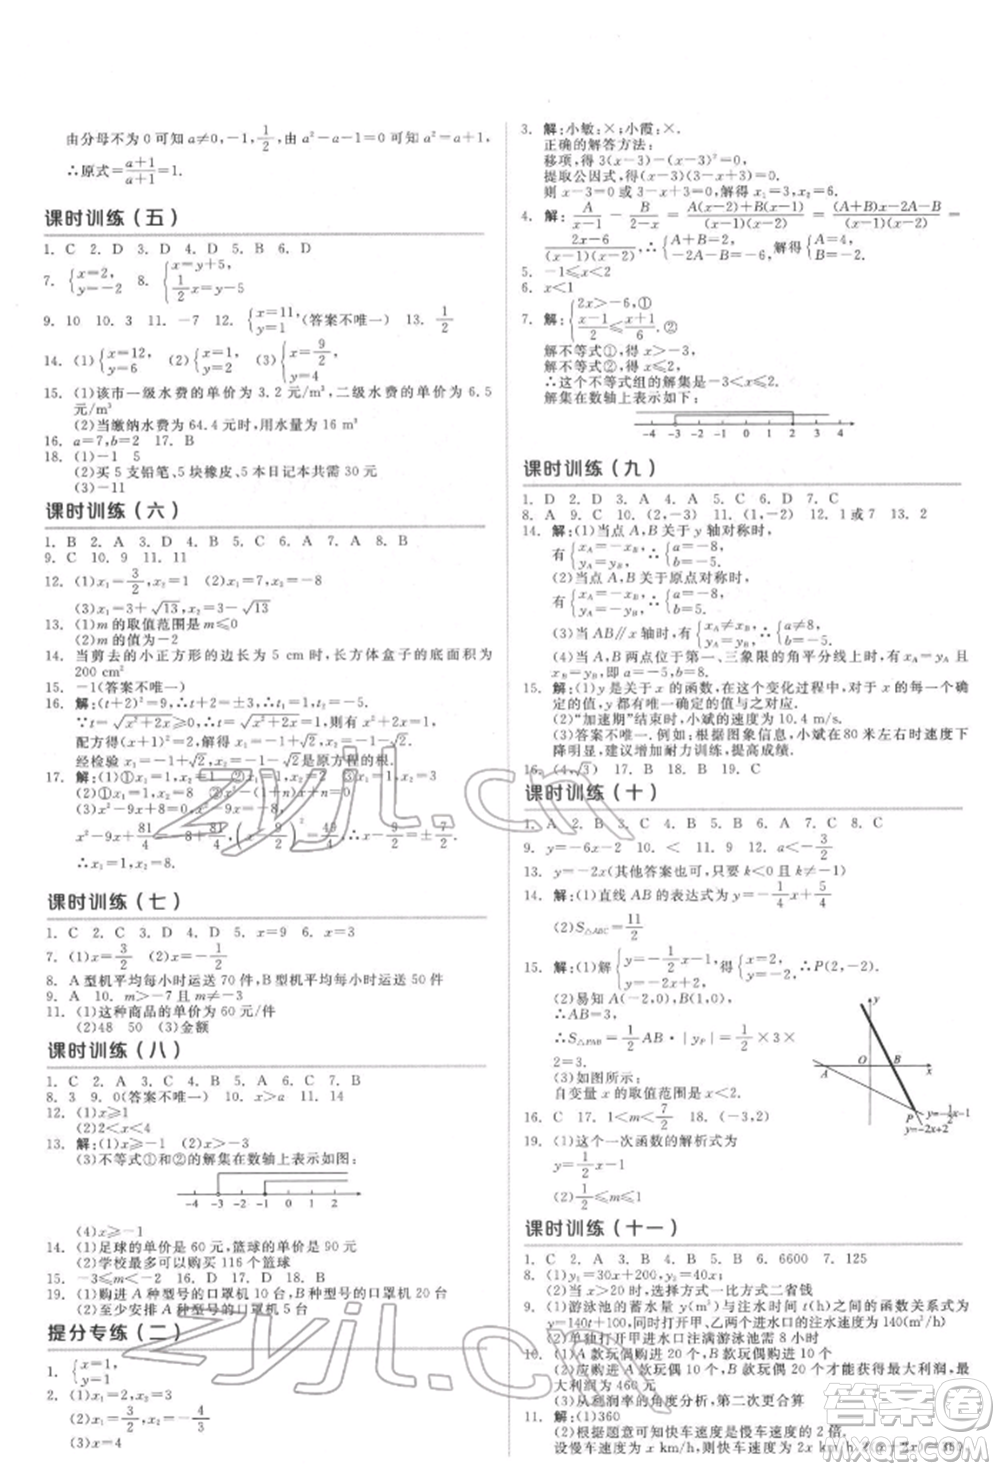 由分母不为0可知a≠0,-1,1/2,由a²-a-1=0可知a²=a+1,
∴原式=(a+1)/(a+1)=1.
课时训练(五)
1. C 2. D 3. D 4. D 5. B 6. D
7. {x=2, y=-2 8. {x=y+5, 1/2x=y-5
9. 10 10. 3 11. -7 12. {x=11, y=1(答案不唯一) 13. 1/2
14. (1){x=12, y=6 (2){x=6, y=1 (3){x=9/2, y=4
15. (1)该市一级水费的单价为3.2元/m³,二级水费的单价为6.5
元/m³
(2)当缴纳水费为64.4元时,用水量为16 m³
16. a=7,b=2 17. B
18. (1)-1 5
(2)买5支铅笔、5块橡皮、5本日记本共需30元
(3)-11
课时训练(六)
1. B 2. A 3. D 4. A 5. B 6. A 7. A 8. B
9. C 10. 9 11. 10
12. (1)x₁=3/2,x₂=1 (2)x₁=7,x₂=-8
(3)x₁=3+√13,x₂=3-√13
13. (1)m的取值范围是m≤0
(2)m的值为-2
14. 当剪去的小正方形的边长为5 cm时,长方体盒子的底面积为
200 cm²
15. -1(答案不唯一)
16. 解:(t+2)²=9 t+2=±3 ∴t₁=1,t₂=-5
∵t=√(x²+2x)≥0,∴t=1,∴√(x²+2x)=1,则有x²+2x=1,
配方得(x+1)²=2,
经检验x₁=-1
是原方程的根.
17. 解:(1)①x₁=1,x₂=1 ②x₁=1,x₂=2
(2)①x₁=1,x₂=8 ②x²-(1+n)x+n=0
x²-9x+81/4=-8+81/4,(x-9/2)²=49/4,∴x-9/2=±7/2,
∴x₁=1,x₂=8.
课时训练(七)
1. C 2. C 3. D 4. D 5. x=9 6. x=3
7. (1)x=3/2 (2)x=-1/2
8. A型机平均每小时运送70件,B型机平均每小时运送60件
9. A 10. m>-7且m≠-3
11. (1)这种商品的单价为60元/件
(2)48 50 (3)金额
课时训练(八)
1. C 2. A 3. D 4. C 5. A 6. D 7. B
8. 3 9. 0(答案不唯一) 10. x>a 11. 14
12. (1)x≤1
(2)2<x<4
13. 解:(1)x≥-1 (2)x≥-3
(3)不等式①和②的解集在数轴上表示如图:
-4 -3 -2 -1 0 1 2
(4)x≥-1
14. (1)足球的单价是60元,篮球的单价是90元
(2)学校最多可以购买116个篮球
15. -3≤m<-2 16. D 17. D 18. B
19. (1)购进A种型号的口罩机10台,B种型号的口罩机20台
(2)至少安排A种型号的口罩机5台
提分专练(二)
1. {x=1, y=1
2. (1)x₁=2,x₂=4
(2)x₁=2,x₂=-4/3
(3)x=4
3. 解:小敏:×;小霞:×.
正确的解答方法:
移项,得3(x-3)-(x-3)²=0,
提取公因式,得(x-3)(3-x+3)=0.
则x-3=0或3-x+3=0,解得x₁=3,x₂=6.
4. 解:A/(x-1)-B/(2-x)=(A(x-2)+B(x-1))/((x-1)(x-2))=((A+B)x-2A-B)/((x-1)(x-2))=
(2x-6)/((x-1)(x-2)),∴{A+B=2, -2A-B=-6,解得{A=4, B=-2.
5. -1≤x<2
6. x<1
7. 解:{2x>-6,① (x-1)/2≤(x+1)/6.②
解不等式①,得x>-3,
解不等式②,得x≤2,
∴这个不等式组的解集是-3<x≤2.
解集在数轴上表示如下:
-4 -3 -2 -1 0 1 2 3 4
课时训练(九)
1. D 2. D 3. D 4. C 5. B 6. D 7. C
8. A 9. C 10. (2,-3) 11. (1,-2) 12. 1或2 13. 2
14. 解:(1)当点A,B关于y轴对称时,
有{x_A=-x_B, y_A=y_B,∴{a=-8, b=-5.
(2)当点A,B关于原点对称时,
有{x_A=-x_B, y_A=-y_B,∴{a=-8, b=5.
(3)当AB∥x轴时,有{x_A≠x_B, y_A=y_B,∴{a≠8, b=-5.
(4)当A,B两点位于第一、三象限的角平分线上时,有x_A=y_A
且x_B=y_B,即a=-5,b=8.
15. 解:(1)y是关于x的函数,在这个变化过程中,对于x的每一个确
定的值,y都有唯一确定的值与之对应.
(2)“加速期”结束时,小斌的速度为10.4 m/s.
(3)答案不唯一.例如:根据图象信息,小斌在80米左右时速度下
降明显,建议增加耐力训练,提高成绩.
16. (4,√3) 17. B 18. B 19. A
课时训练(十)
1. A 2. C 3. B 4. D 5. A 6. A 7. C 8. C
9. y=-6x-2 10. < 11. 9 12. a<-3/2
13. y=-2x(其他答案也可,只要k<0即可)
14. 解:(1)直线AB的表达式为y=-1/4x+5/4
(2)S△ABC=11/2
15. 解:(1)解{y=-1/2x-1, y=-2x+2,得{x=2, y=-2,∴P(2,-2).
(2)易知A(-2,0),B(1,0),
∴AB=3,
∴S△PAB=1/2AB·|y_P|=1/2×3×
2=3.
(3)如图所示:
自变量x的取值范围是x<2.
y
A O B x
P y=-1/2x-1
y=-2x+2
16. C 17. 1<m<7/2 18. (-3,2)
19. (1)这个一次函数的解析式为
y=1/2x-1
(2)1/2≤m≤1
课时训练(十一)
1. C 2. A 3. B 4. B 5. B 6. 6600 7. 125
8. (1)y₁=30x+200 y₂=40x
(2)当x>20时,选择方式一比方式二省钱
9. (1)游泳池的蓄水量y(m³)与注水时间t(h)的函数关系式为
y=140t+100,甲、乙两个进水口的注水速度和为140(m³/h)
(2)单独打开甲进水口注满游泳池需8小时
10. (1)A款玩偶购进20个,B款玩偶购进10个
(2)应购进A款玩偶10个,B款玩偶20个才能获得最大利润,最
大利润为460元
(3)从利润率的角度分析,第二次更合算
11. 解:(1)360
(2)根据题意可知快车速度是慢车速度的2倍.
设慢车速度为x km/h,则快车速度为2x km/h.
zyjl.cn
zyjl.cn
答案圈